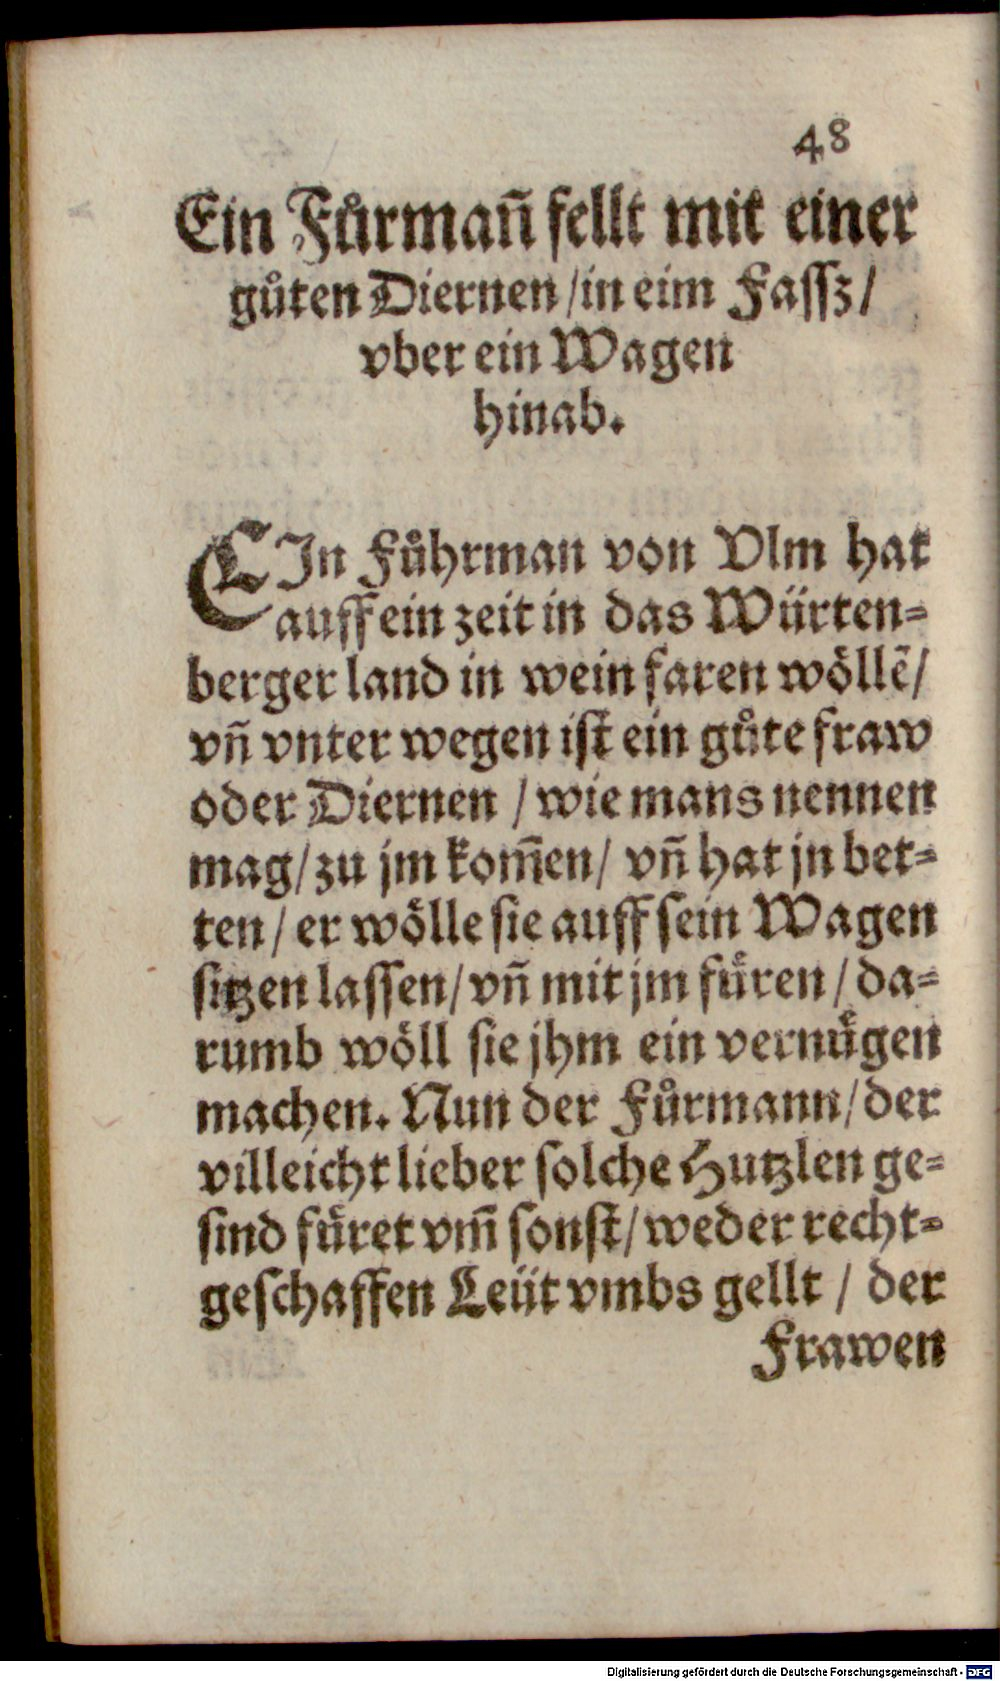 48
Ein Fůrmañ fellt mit einer
gůten Diernen / in eim Fassz /
vber ein Wagen
hinab.
EIn Fůhrman von Vlm hat
auff ein zeit in das Würten⸗
berger land in wein faren wöllẽ /
vñ vnter wegen ist ein gůte fraw
oder Diernen / wie mans nennen
mag / zu jm kom̃en / vñ hat jn bet⸗
ten / er wölle sie auff sein Wagen
sitzen lassen / vñ mit jm füren / da⸗
rumb wöll sie jhm ein vernůgen
machen. Nun der Fůrmann / der
villeicht lieber solche Hutzlen ge⸗
sind füret vm̃ sonst / weder recht⸗
geschaffen Leüt vmbs gellt / der
Frawen
Digitalisierung gefördert durch die Deutsche Forschungsgemeinschaft - DFG